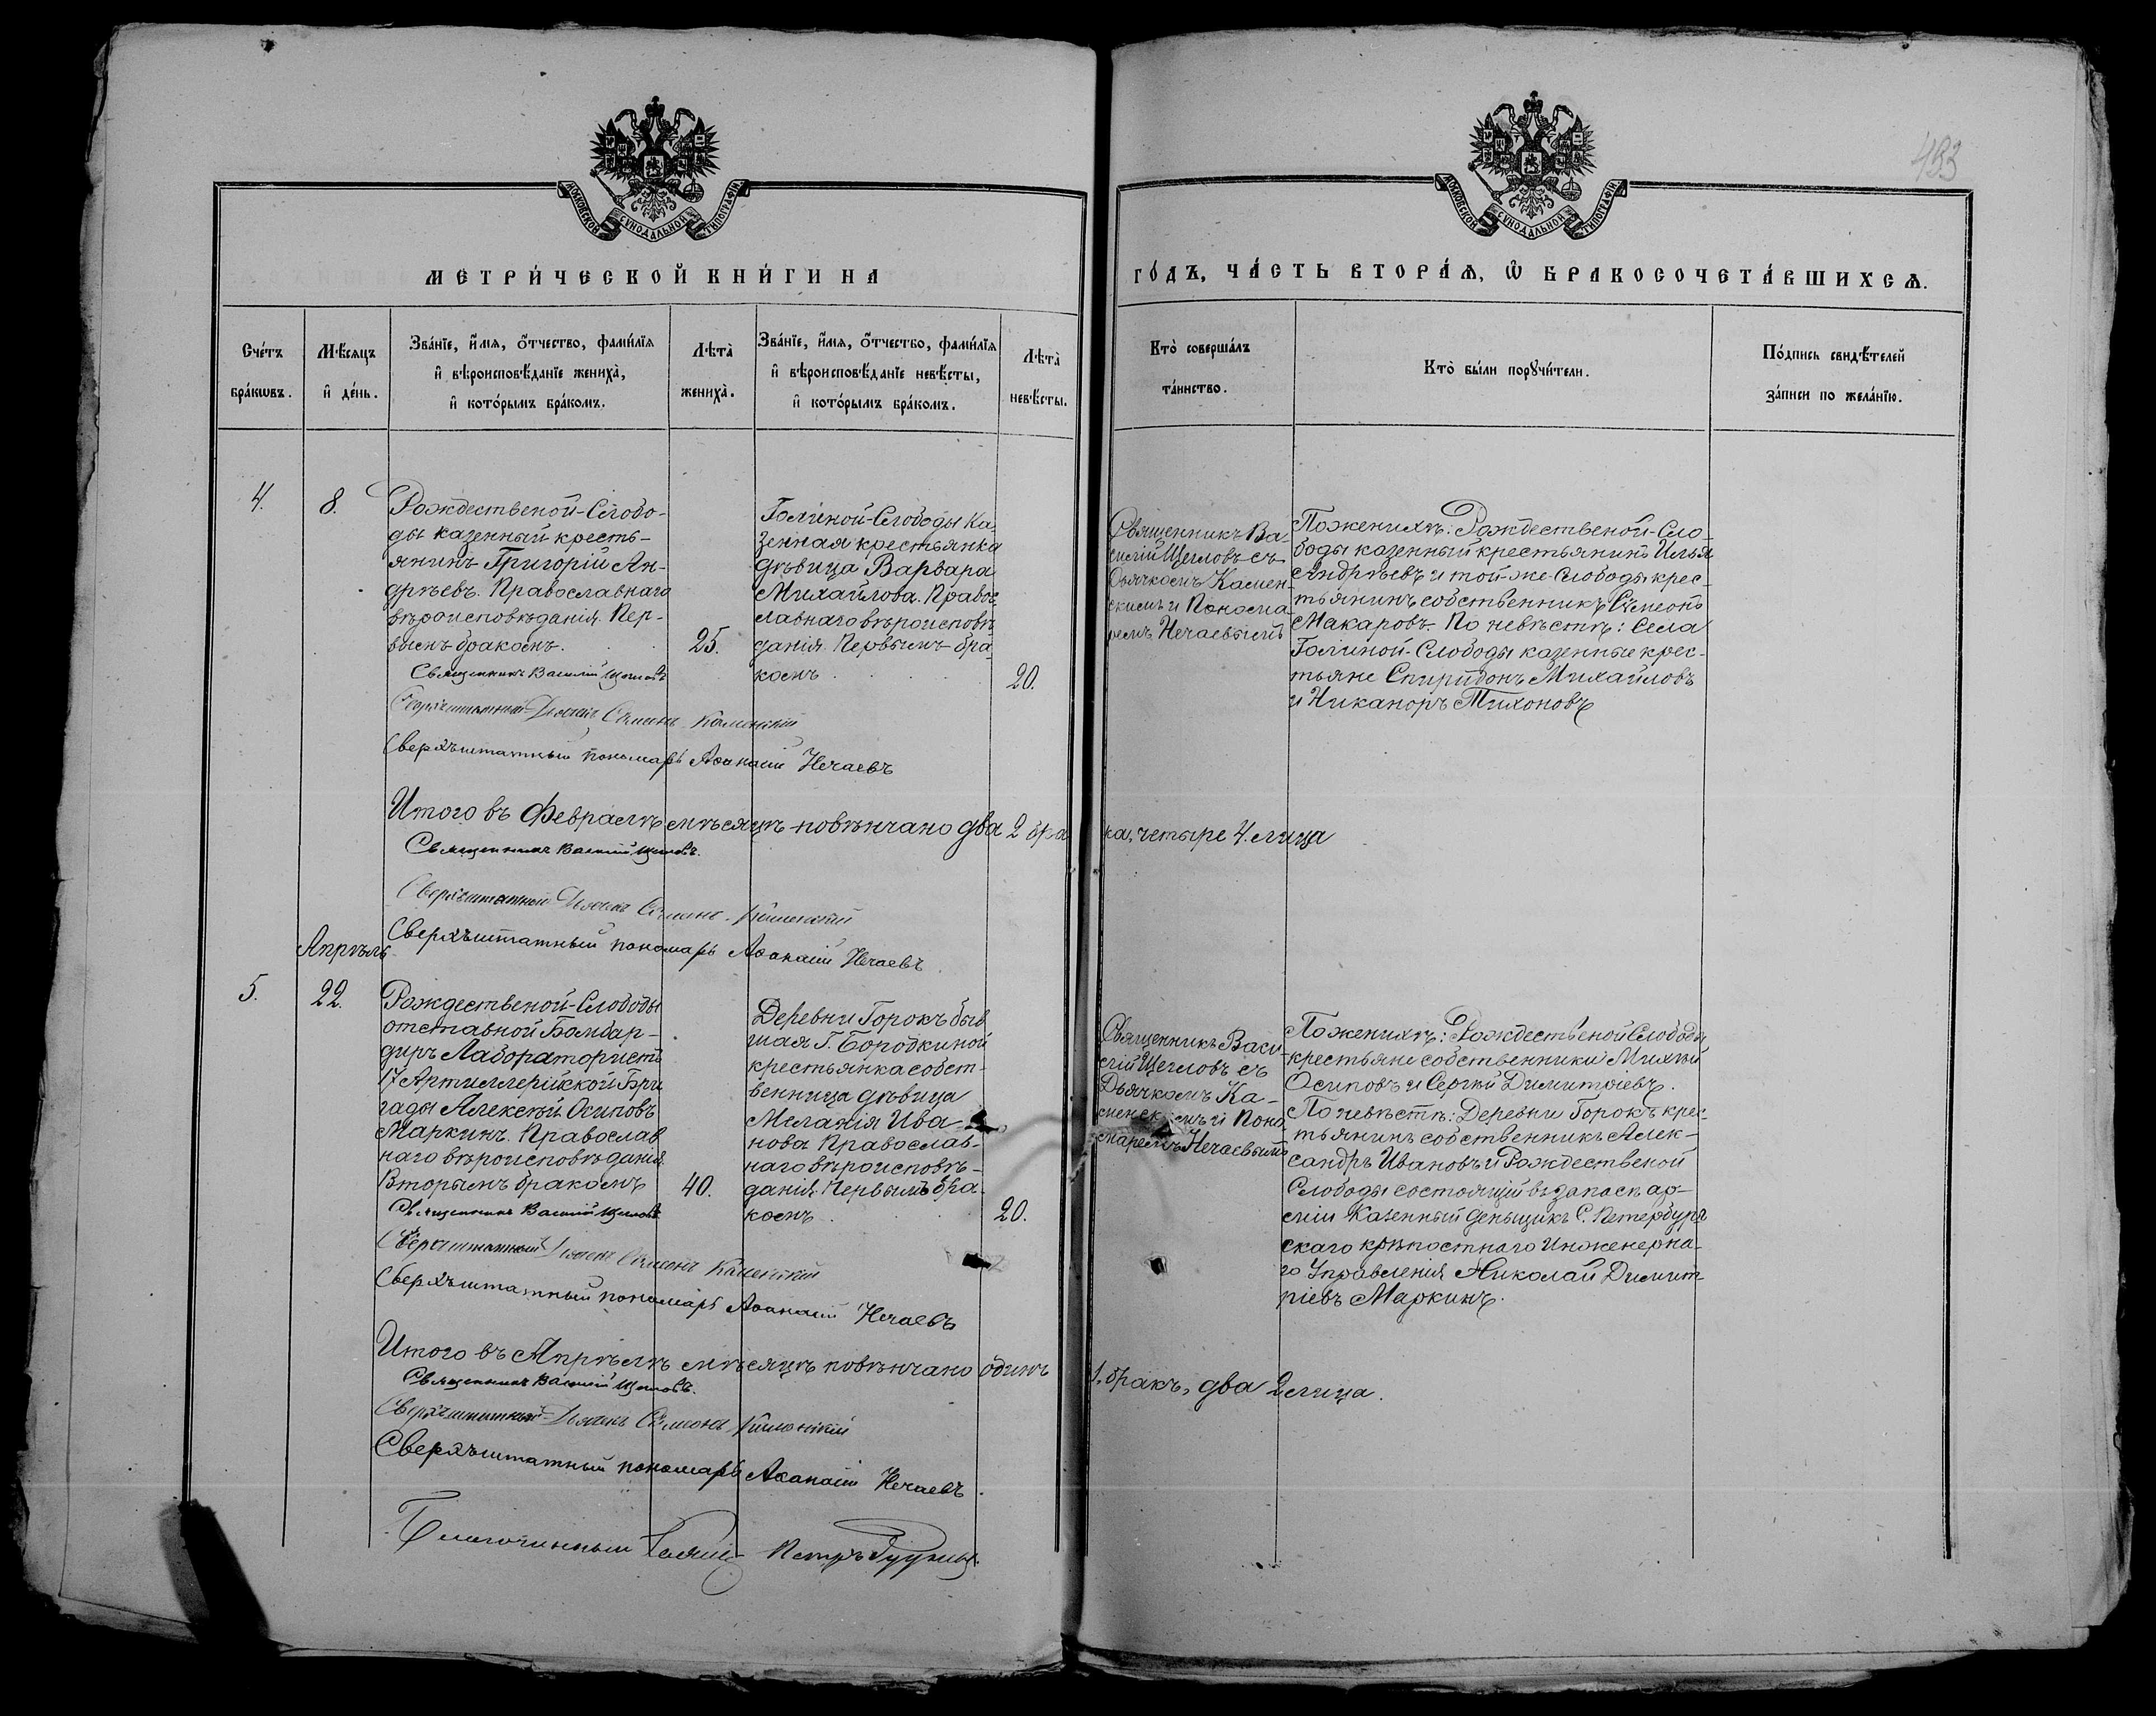 493
МОСКОВСКОЙ СУНОДАЛЬНОЙ ТИПОГРАФІИ
МОСКОВСКОЙ СУНОДАЛЬНОЙ ТИПОГРАФІИ
МЕТРИ́ЧЕСКОЙ КНИ́ГИ НА
ГО́ДЪ, ЧА́СТЬ ВТОРА́Ѧ, Ѽ БРАКОСОЧЕТА́ВШИХСѦ.
Сче́тъ
бра́кωвъ.
Мѣ́сяцъ
и҆ де́нь.
Зва́нїе, и҆́мя, ѻ҆́тчество, фами́лїя
и҆ вѣроисповѣ́данїе жениха̀,
и҆ кото́рымъ бра́комъ.
Лѣта̀
жениха̀.
Зва́нїе, и҆́мя, ѻ҆́тчество, фами́лїя
и҆ вѣроисповѣ́данїе невѣ́сты,
и҆ кото́рымъ бра́комъ.
Лѣта̀
невѣ́сты.
Кто̀ соверша́лъ
та́инство.
Кто̀ бы́ли порꙋчи́тели.
По́дпись свидѣ́телей
за́писи по жела́нїю.
4.
8.
Рождественой-Слобо-
ды казенный кресть-
янинъ Григорій Ан-
дреѣвъ. Православнаго
вѣроисповѣданія. Пер-
вымъ бракомъ.
25.
Голиной-Слободы ка-
зенная крестьянка
дѣвица Варвара
Михайлова. Правос-
лавнаго вѣроисповѣ-
данія. Первымъ бра-
комъ
20.
Священникъ Ва-
силій Щегловъ съ
Дьячкомъ Камен-
скимъ и Понома-
ремъ Нечаевымъ
По женихѣ: Рождественой-Сло-
боды казенный крестьянинъ Илья
Андреѣвъ и той-же Слободы крес-
тьянинъ собственникъ Сѵмеонъ
Макаровъ. По невѣстѣ: Села
Голиной-Слободы казенные крес-
тьяне Спиридонъ Михайловъ
и Никаноръ Тихоновъ
Священникъ Василій Щегловъ
Сверхъштатный Дьячекъ Сѵмеонъ Каменскій
Сверхъштатный пономарь Аѳанасій Нечаевъ
Итого въ Февралѣ мѣсяцѣ повѣнчано два 2 бра
ка, четыре 4. лица
Священникъ Василій Щегловъ.
Сверхъштатный Дьячекъ Сѵмеонъ Каменскій
Сверхъштатный пономарь Аѳанасій Нечаевъ
Апрѣль
5.
22.
Рождественой-Слободы
отставной Бомбар-
диръ Лаборатористъ
17 Артиллерійской Бри
гады Алексѣй Осиповъ
Маркинъ. Православ
наго вѣроисповѣданія.
Вторымъ бракомъ
40.
Деревни Горокъ быв
шая Г. Бородкиной
крестьянка собст-
венница дѣвица
Меланія Ива-
нова Православ-
наго вѣроисповѣ-
данія. Первымъ бра-
комъ
20.
Священникъ Васи-
лій Щегловъ съ
Дьячкомъ Ка-
менскимъ и Поно-
маремъ Нечаевымъ
По женихѣ: Рождественой Слободы
крестьяне собственники Михѣй
Осиповъ и Сергѣй Димитріевъ.
По невѣстѣ: Деревни Горокъ крес-
тьянинъ собственникъ Алек-
сандръ Ивановъ и Рождественой
Слободы состоящій въ запасѣ ар-
міи Казенный деньщикъ С. Петербург
скаго крѣпостнаго Инженерна-
го Управленія Николай Димит
ріевъ Маркинъ.
Священникъ Василій Щегловъ
Сверхштатный Дьячекъ Сѵмеонъ Каменскій
Сверхъштатный пономарь Аѳанасій Нечаевъ
Итого въ Апрѣлѣ мѣсяцѣ повѣнчано одинъ
1. бракъ, два 2 лица.
Священникъ Василій Щегловъ.
Сверхъштатный Дьячекъ Сѵмеонъ Каменскій
Сверхъштатный пономарь Аѳанасій Нечаевъ.
Благочинный Петръ